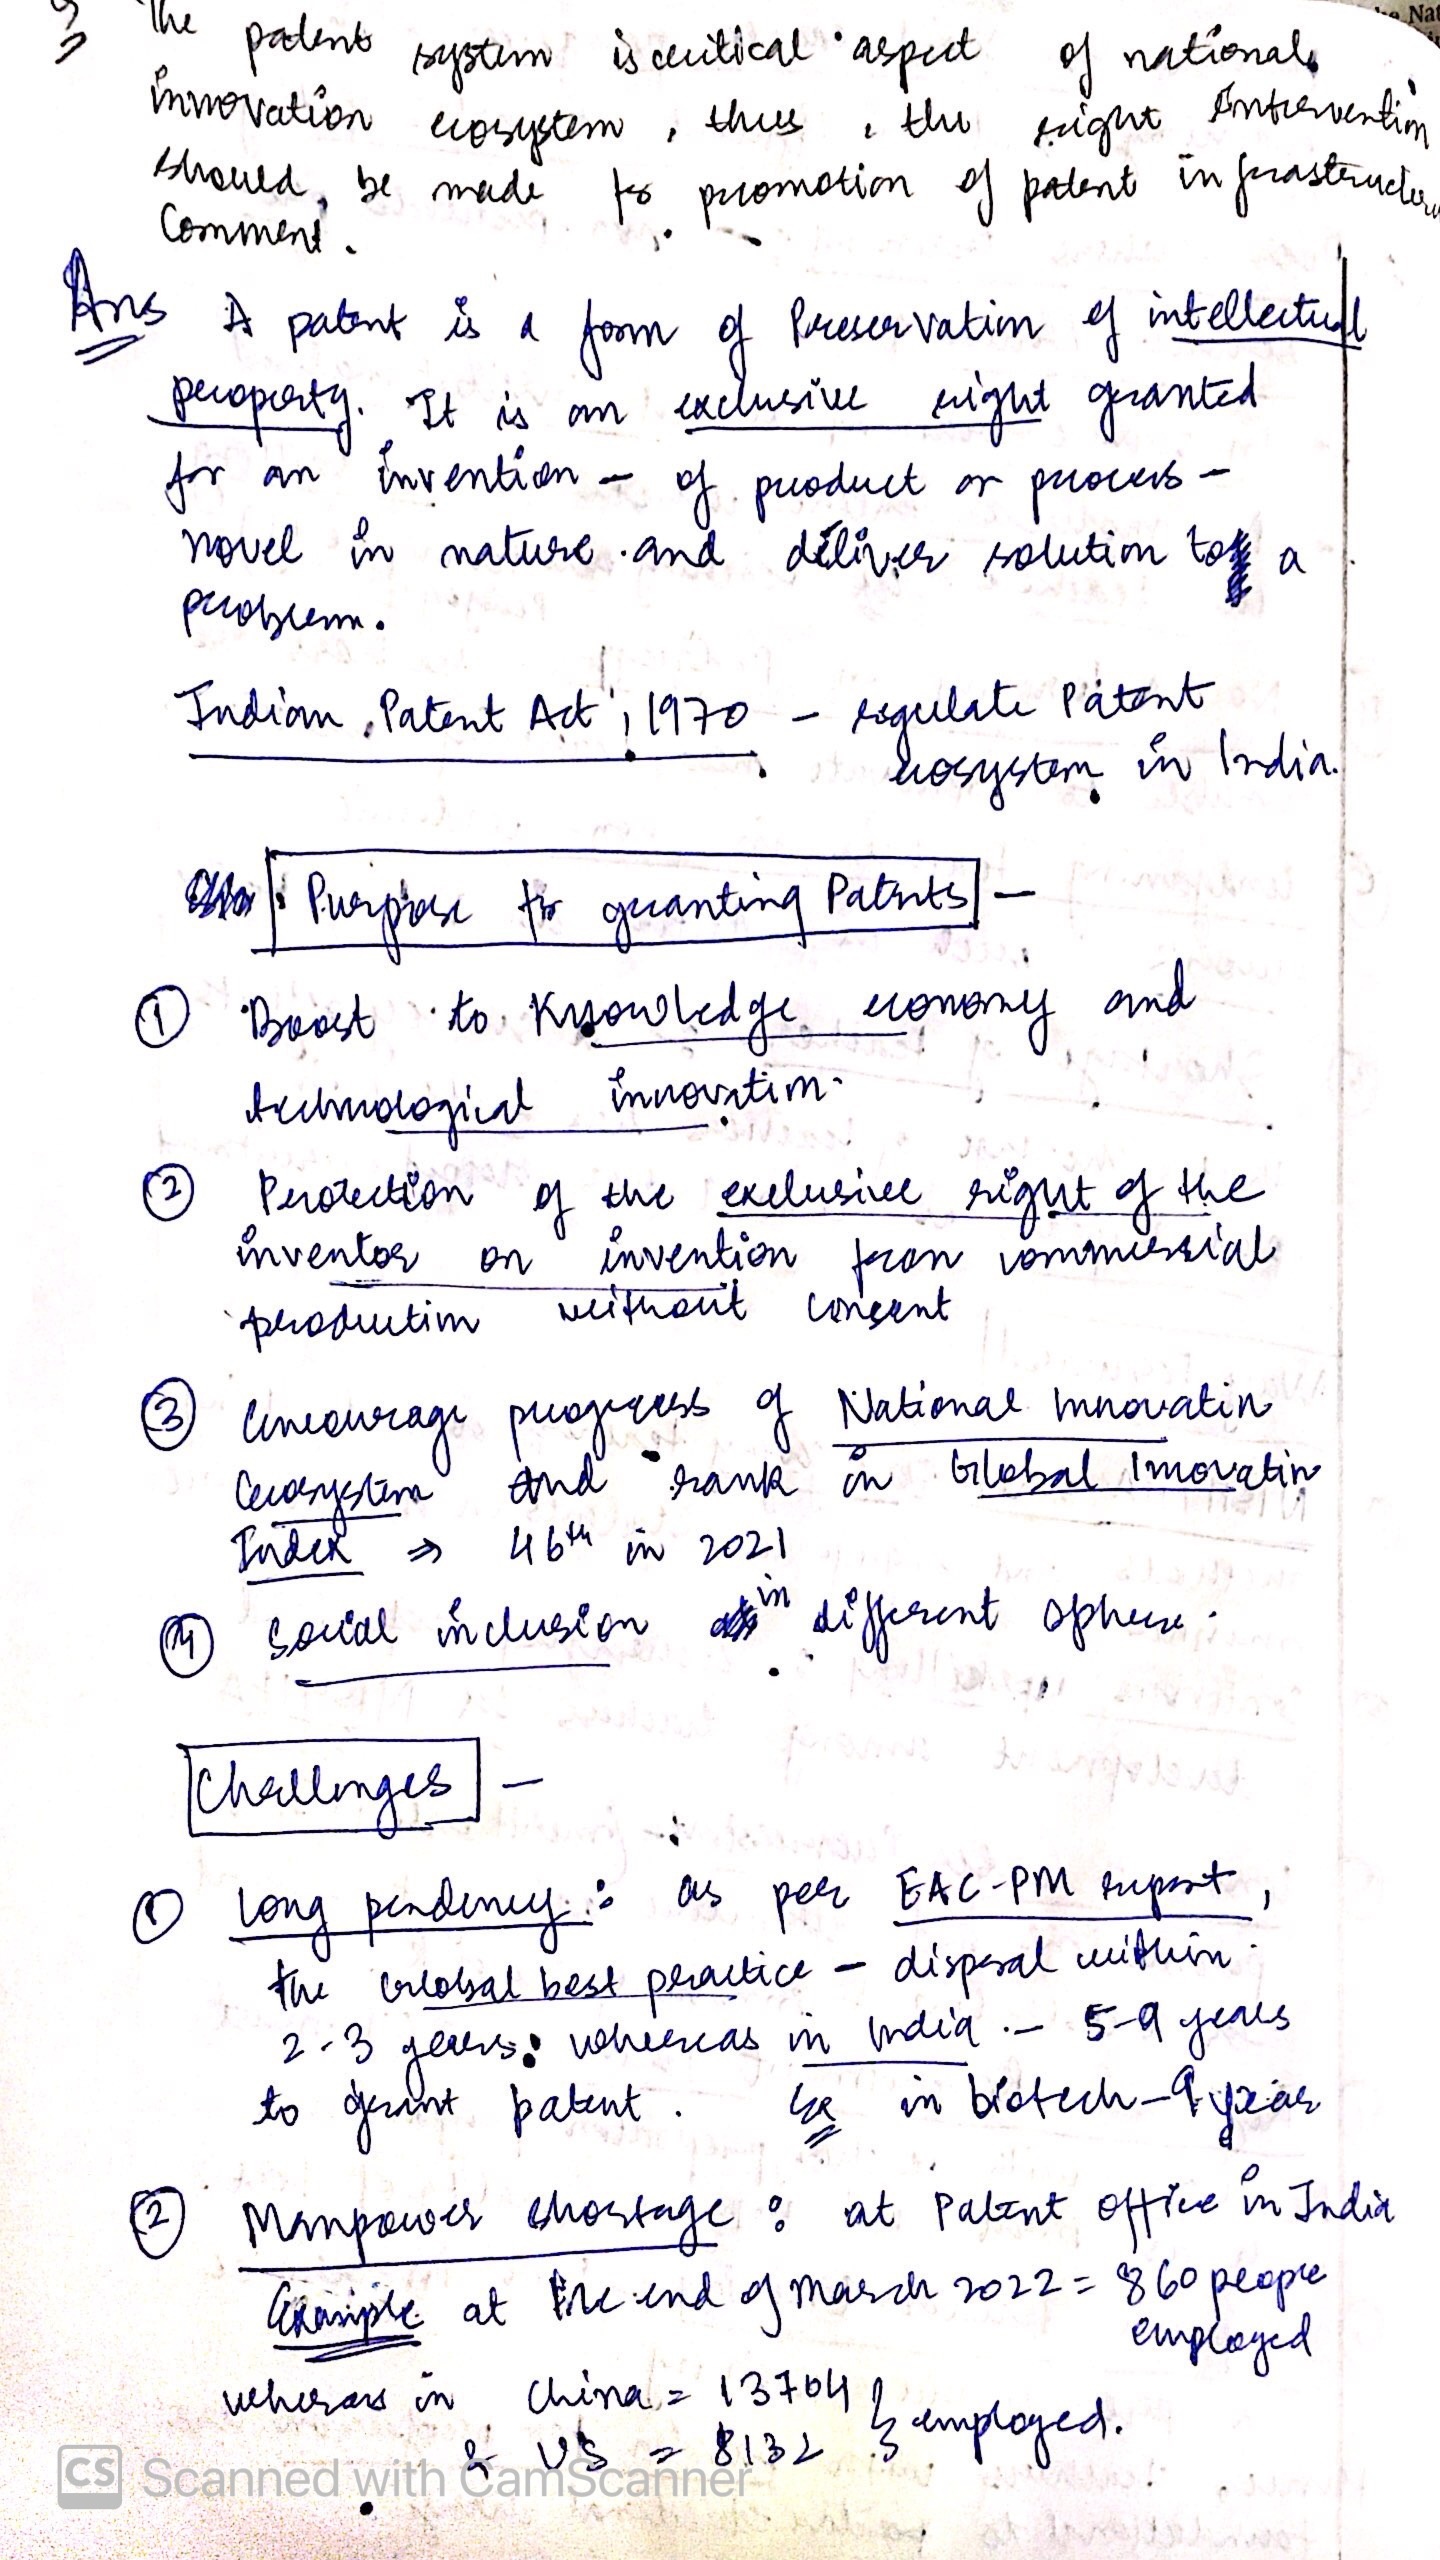 The patent system is critical aspect of national
innovation ecosystem, thus, the right intervention
should be made for promotion of patent infrastructure
Comment.
Ans A patent is a form of Preservation of intellectual
property. It is an exclusive right granted
for an invention - of product or process -
novel in nature and deliver solution to a
problem.
Indian Patent Act, 1970 - regulate Patent
ecosystem in India.
Purpose for granting Patents -
① Boost to Knowledge economy and
technological innovation.
② Protection of the exclusive right of the
inventor on invention from commercial
production without consent
③ Encourage progress of National Innovation
Ecosystem and rank in Global Innovation
Index ⇒ 46th in 2021
④ Social inclusion in different sphere.
Challenges -
① Long pendency : as per EAC-PM report,
the Global best practice - disposal within
2-3 years. whereas in India - 5-9 years
to grant patent. Ex in biotech - 9 year
② Manpower shortage : at Patent office in India
Example at the end of March 2022 = 860 people
employed
whereas in China = 13704 } employed.
& US = 8132
CS Scanned with CamScanner